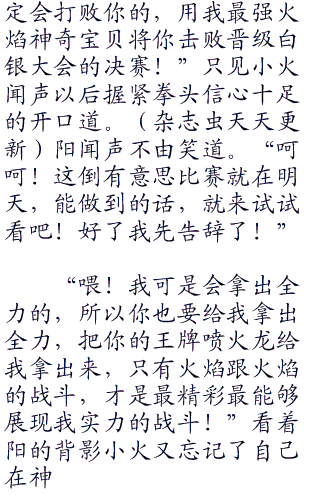 定会打败你的，用我最强火
焰神奇宝贝将你击败晋级白
银大会的决赛！”只见小火
闻声以后握紧拳头信心十足
的开口道。（杂志虫天天更
新）阳闻声不由笑道。“呵
呵！这倒有意思比赛就在明
天，能做到的话，就来试试
看吧！好了我先告辞了！”
“喂！我可是会拿出全
力的，所以你也要给我拿出
全力，把你的王牌喷火龙给
我拿出来，只有火焰跟火焰
的战斗，才是最精彩最能够
展现我实力的战斗！”看着
阳的背影小火又忘记了自己
在神